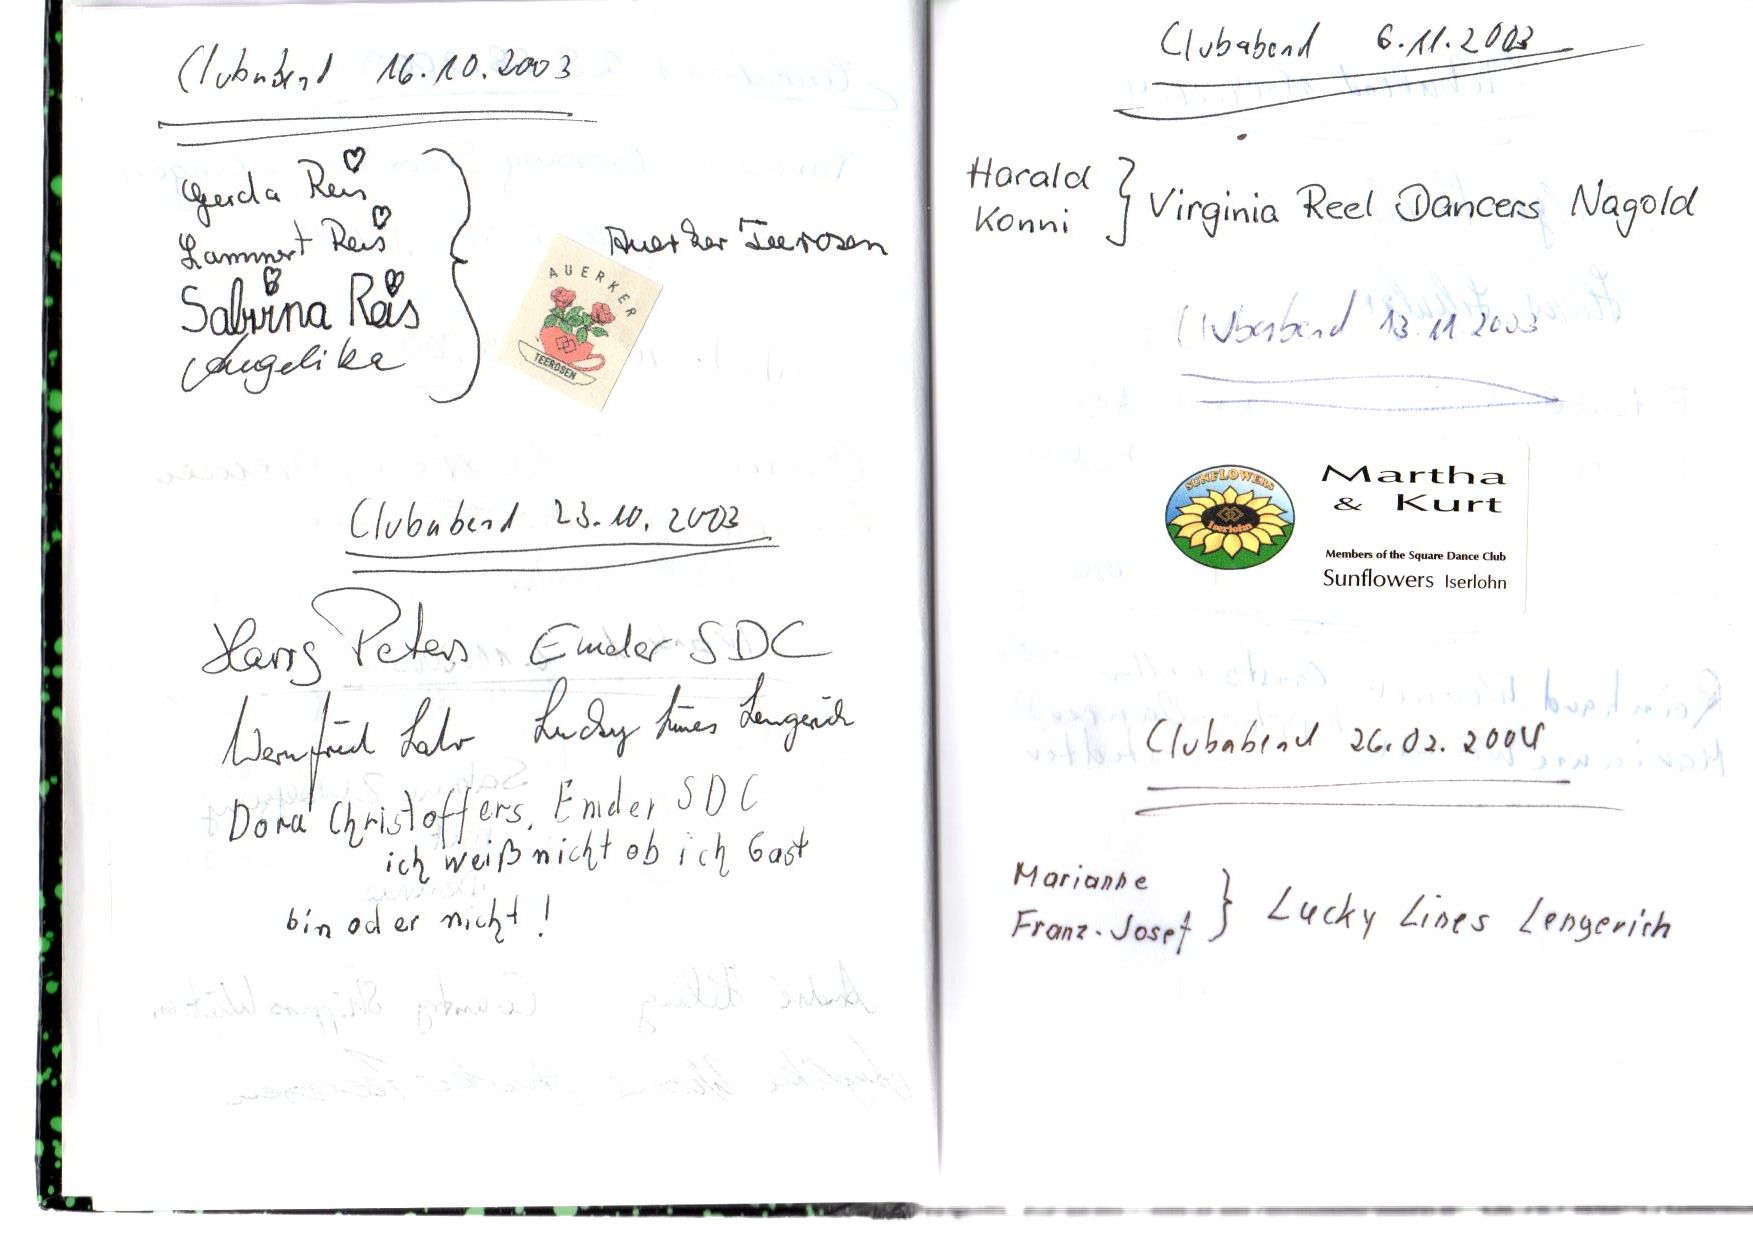 Clubabend 16.10.2003
Gerda Reis
Lammert Reis
Sabrina Reis
Angelika
Auerker Teerosen
AUERKER
TEEROSEN
Clubabend 23.10.2003
Harry Peters Emder SDC
Wernfried Lahr Lucky Lines Lengerich
Dora Christoffers, Emder SDC
ich weiß nicht ob ich Gast
bin oder nicht!
Clubabend 6.11.2003
Harald
Konni
Virginia Reel Dancers Nagold
Clubabend 13.11.2003
SUNFLOWERS
Iserlohn
Martha
& Kurt
Members of the Square Dance Club
Sunflowers Iserlohn
Clubabend 26.02.2004
Marianne
Franz-Josef
Lucky Lines Lengerich